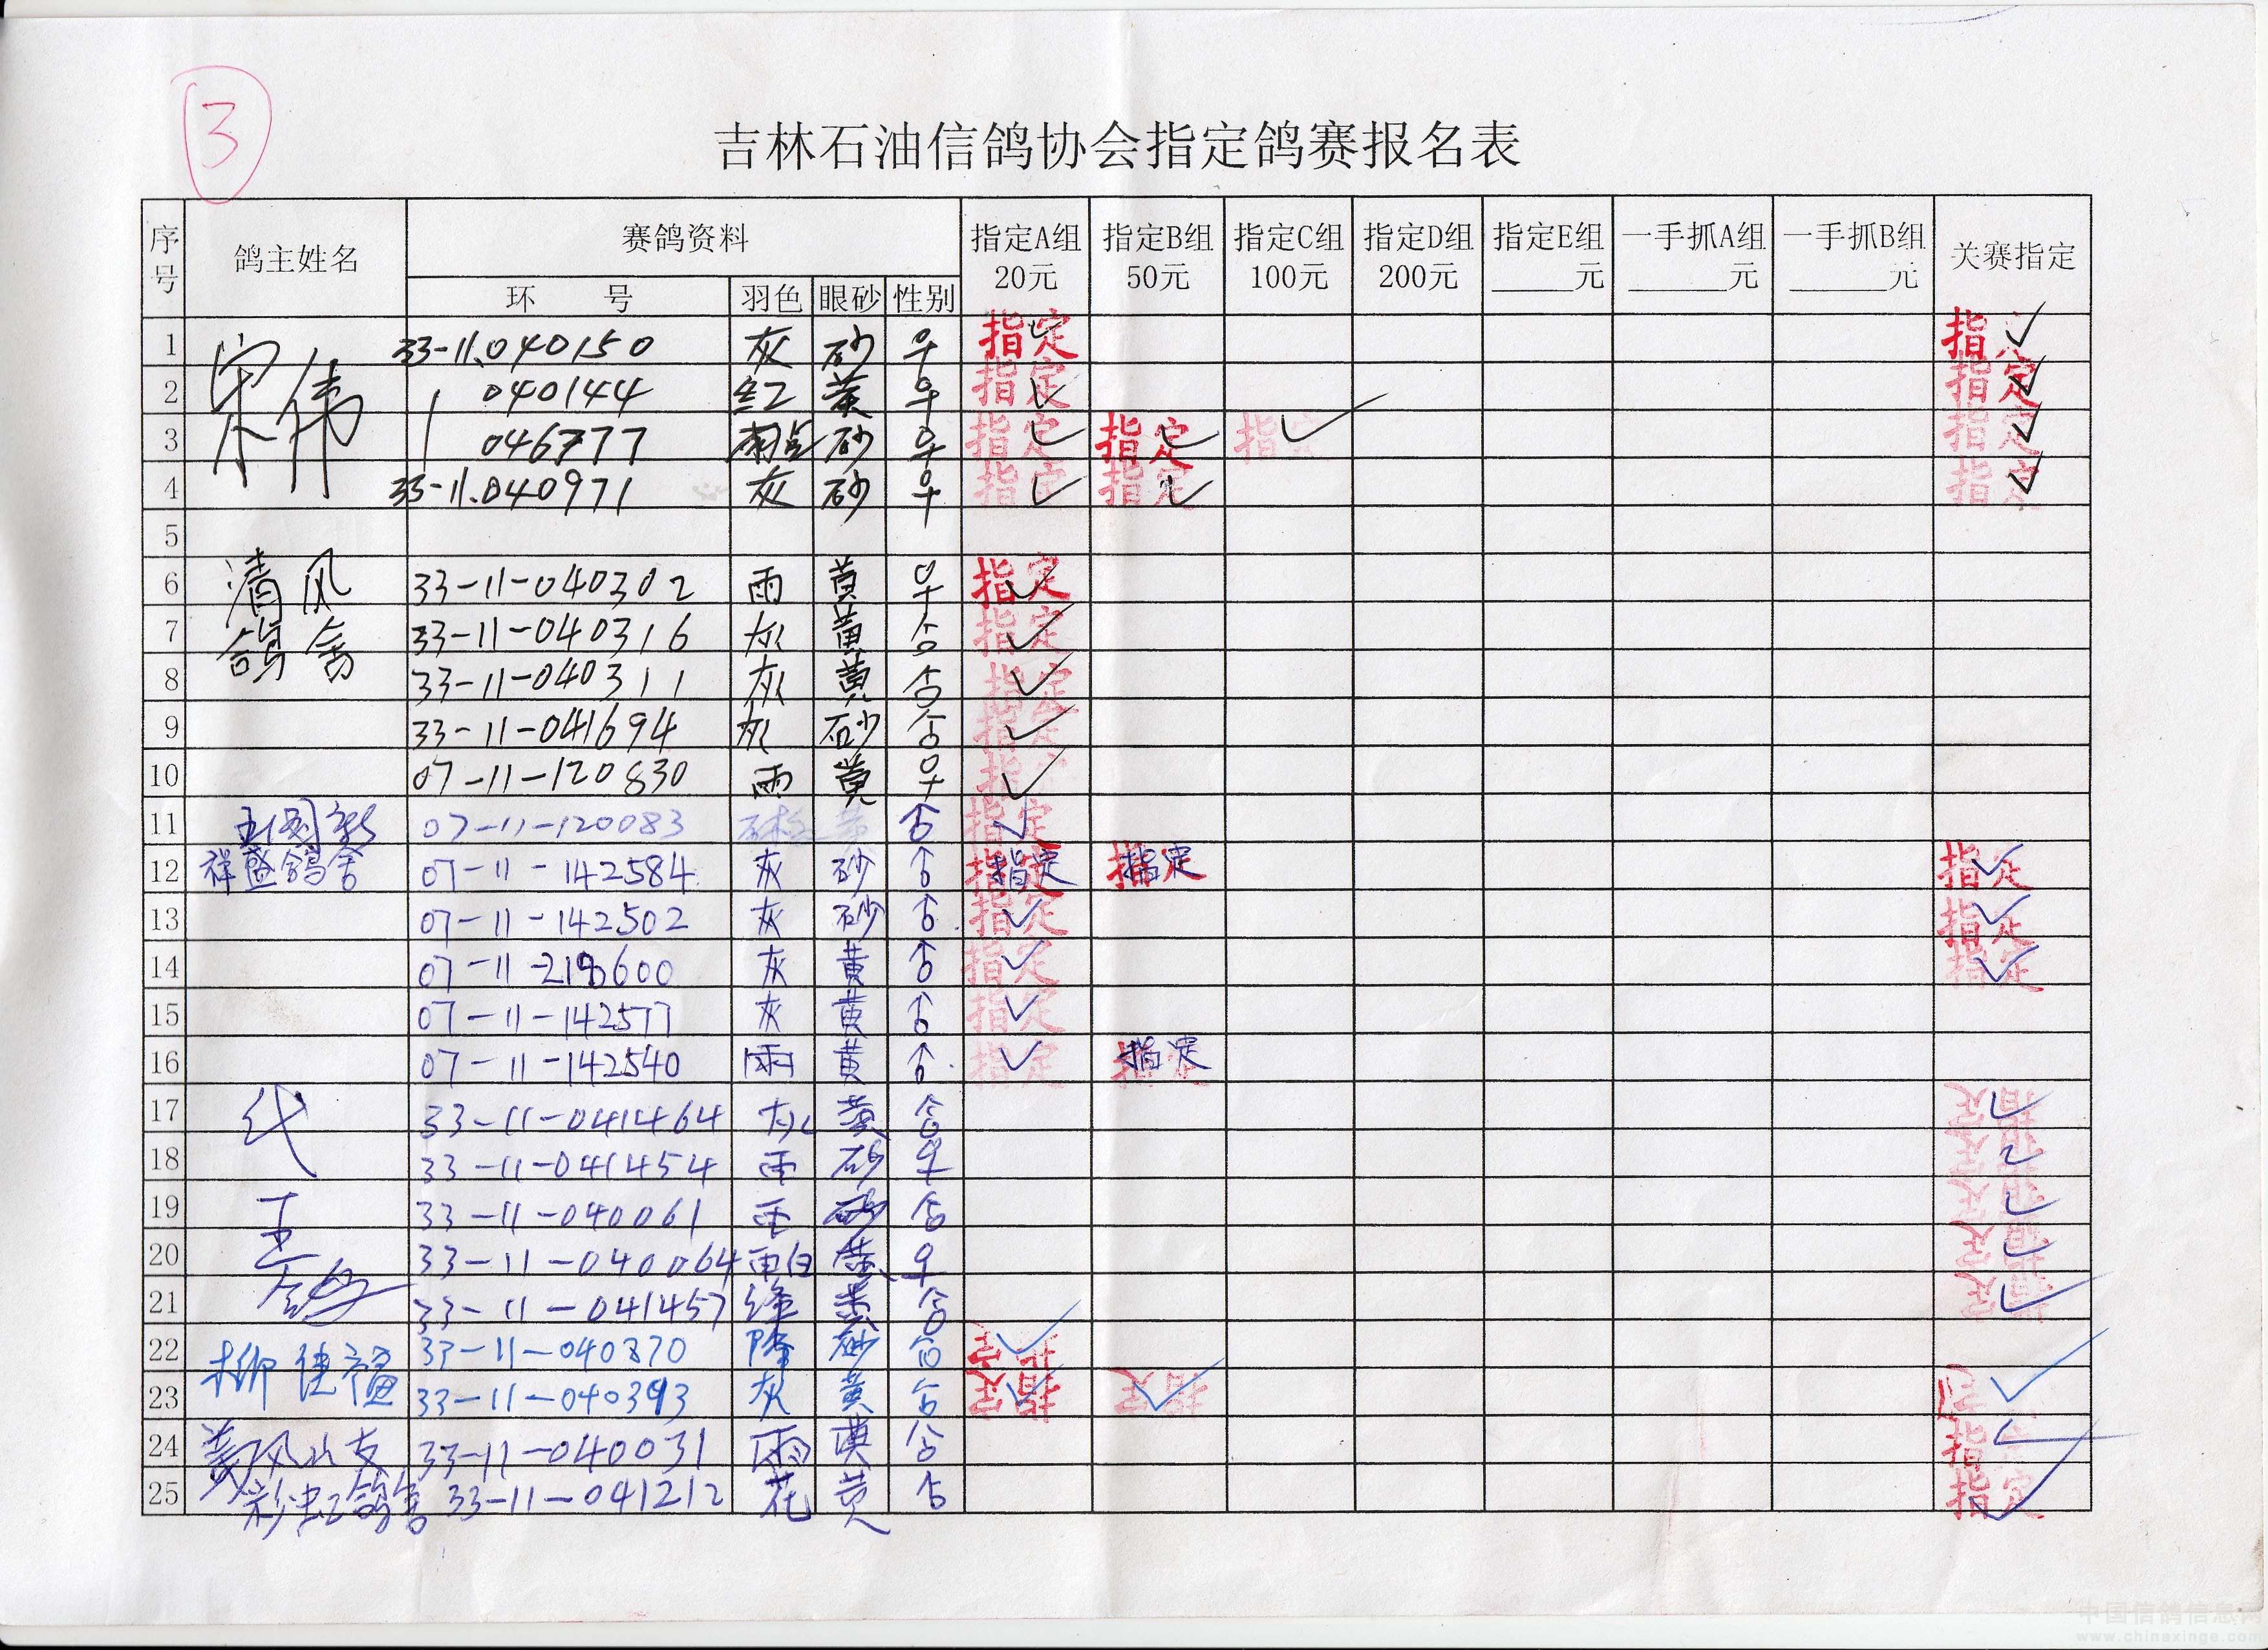 3
吉林石油信鸽协会指定鸽赛报名表
序号 鸽主姓名 赛鸽资料 指定A组 20元 指定B组 50元 指定C组 100元 指定D组 200元 指定E组 ____元 一手抓A组 ____元 一手抓B组 ____元 关赛指定
环 号 羽色 眼砂 性别
1 宋伟 33-11.040150 灰 砂 ♀ 指定 ✓ 指 ✓
2 040144 红 黄 ♀ 指定 ✓ 指定 ✓
3 046777 雨点 砂 ♀ 指定 ✓ 指定 ✓ 指定 ✓ 指定 ✓
4 33-11.040971 灰 砂 ♀ 指定 ✓ 指定 ✓ 指定 ✓
5
6 清风 33-11-040302 雨 黄 ♀ 指定 ✓
7 鸽舍 33-11-040316 灰 黄 ♂ 指定 ✓
8 33-11-040311 灰 黄 ♂ 指定 ✓
9 33-11-041694 灰 砂 ♂ 指定 ✓
10 07-11-120830 雨 黄 ♀ 指定 ✓
11 07-11-120083 ♂ 指定 ✓
12 祥盛鸽舍 07-11-142584 灰 砂 ♂ 指定 指定 指定 ✓
13 07-11-142502 灰 砂 ♂ 指定 ✓ 指定 ✓
14 07-11- 灰 黄 ♂ 指定 ✓ 指定 ✓
15 07-11-142577 灰 黄 ♂ 指定 ✓
16 07-11-142540 雨 黄 ♂ 指定 ✓ 指定
17 代 33-11-041464 灰 黄 ♂ 指定 ✓
18 33-11-041454 雨 砂 ♀ 指定 ✓
19 王 33-11-040061 雨 砂 ♂ 指定 ✓
20 33-11-040064 雨白 黄 ♀ 指定 ✓
21 鸽 33-11-041457 绛 黄 ♂ 指定 ✓
22 柳佳福 33-11-040370 降 砂 ♂ 指定 ✓
23 33-11-040393 灰 黄 ♂ 指定 ✓ 指定 ✓ 指定 ✓
24 33-11-040031 雨 黄 ♂ 指 ✓
25 彩虹鸽舍 33-11-041212 花 黄 ♂ 指定 ✓
中国信鸽信息网
www.chinaxinge.com